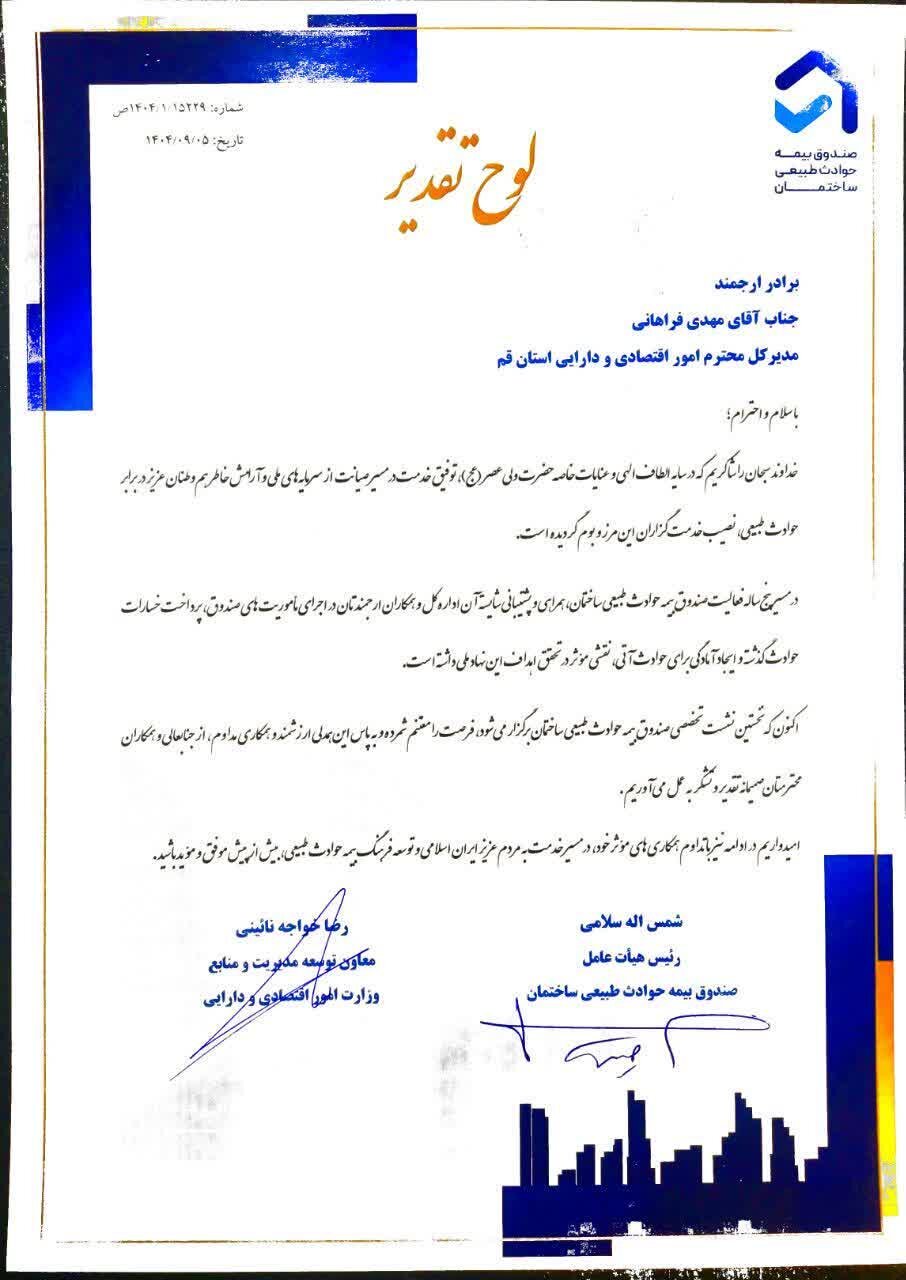 صندوق بیمه
حوادث طبیعی
ساختمان
شماره: ۱۴۰۴/۱/۱۵۲۲۹ص
تاریخ: ۱۴۰۴/۰۹/۰۵
لوح تقدیر
برادر ارجمند
جناب آقای مهدی فراهانی
مدیرکل محترم امور اقتصادی و دارایی استان قم
با سلام و احترام؛
خداوند سبحان را شاکریم که در سایه الطاف الهی و عنایات خاصه حضرت ولی عصر (عج)، توفیق خدمت در مسیر صیانت از سرمایه های ملی و آرامش خاطر هم وطنان عزیز در برابر
حوادث طبیعی، نصیب خدمت گزاران این مرز و بوم گردیده است.
در مسیر پنج ساله فعالیت صندوق بیمه حوادث طبیعی ساختمان، همراهی و پشتیبانی شایسته آن اداره کل و همکاران ارجمندتان در اجرای مأموریت های صندوق، پرداخت خسارات
حوادث گذشته و ایجاد آمادگی برای حوادث آتی، نقشی مؤثر در تحقق اهداف این نهاد ملی داشته است.
اکنون که نخستین نشست تخصصی صندوق بیمه حوادث طبیعی ساختمان برگزار می شود، فرصت را مغتنم شمرده و به پاس این همدلی ارزشمند و همکاری مداوم، از جنابعالی و همکاران
محترمتان صمیمانه تقدیر و تشکر به عمل می آوریم.
امیدواریم در ادامه نیز با تداوم همکاری های مؤثر خود، در مسیر خدمت به مردم عزیز ایران اسلامی و توسعه فرهنگ بیمه حوادث طبیعی، بیش از پیش موفق و مؤید باشید.
شمس اله سلامی
رئیس هیأت عامل
صندوق بیمه حوادث طبیعی ساختمان
رضا خواجه نائینی
معاون توسعه مدیریت و منابع
وزارت امور اقتصادی و دارایی